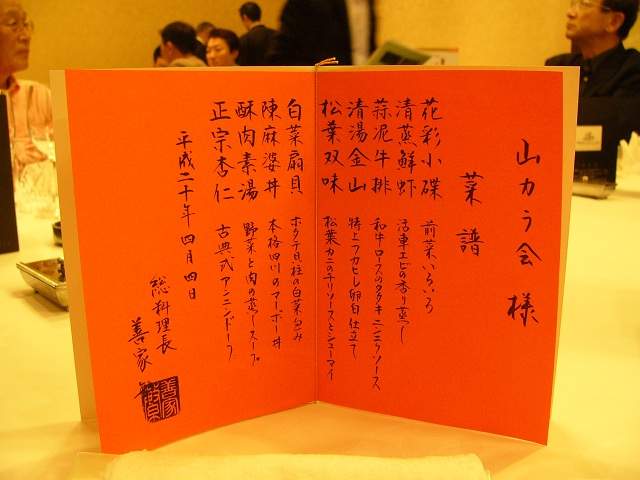 山カラ会様
菜譜
花彩小碟 前菜いろいろ
清蒸鮮虾 活車エビの香り蒸し
蒜泥牛排 和牛ロースのタタキニンニクソース
清湯金山 特上フカヒレ卵白仕立て
松葉双味 松葉カニのチリソースとシューマイ
白菜扇貝 ホタテ貝柱の白菜包み
陳麻婆丼 本格四川のマーボー丼
酥肉素湯 野菜と肉の蒸しスープ
正宗杏仁 古典式アンニンドーフ
平成二十年四月四日
総料理長
善家